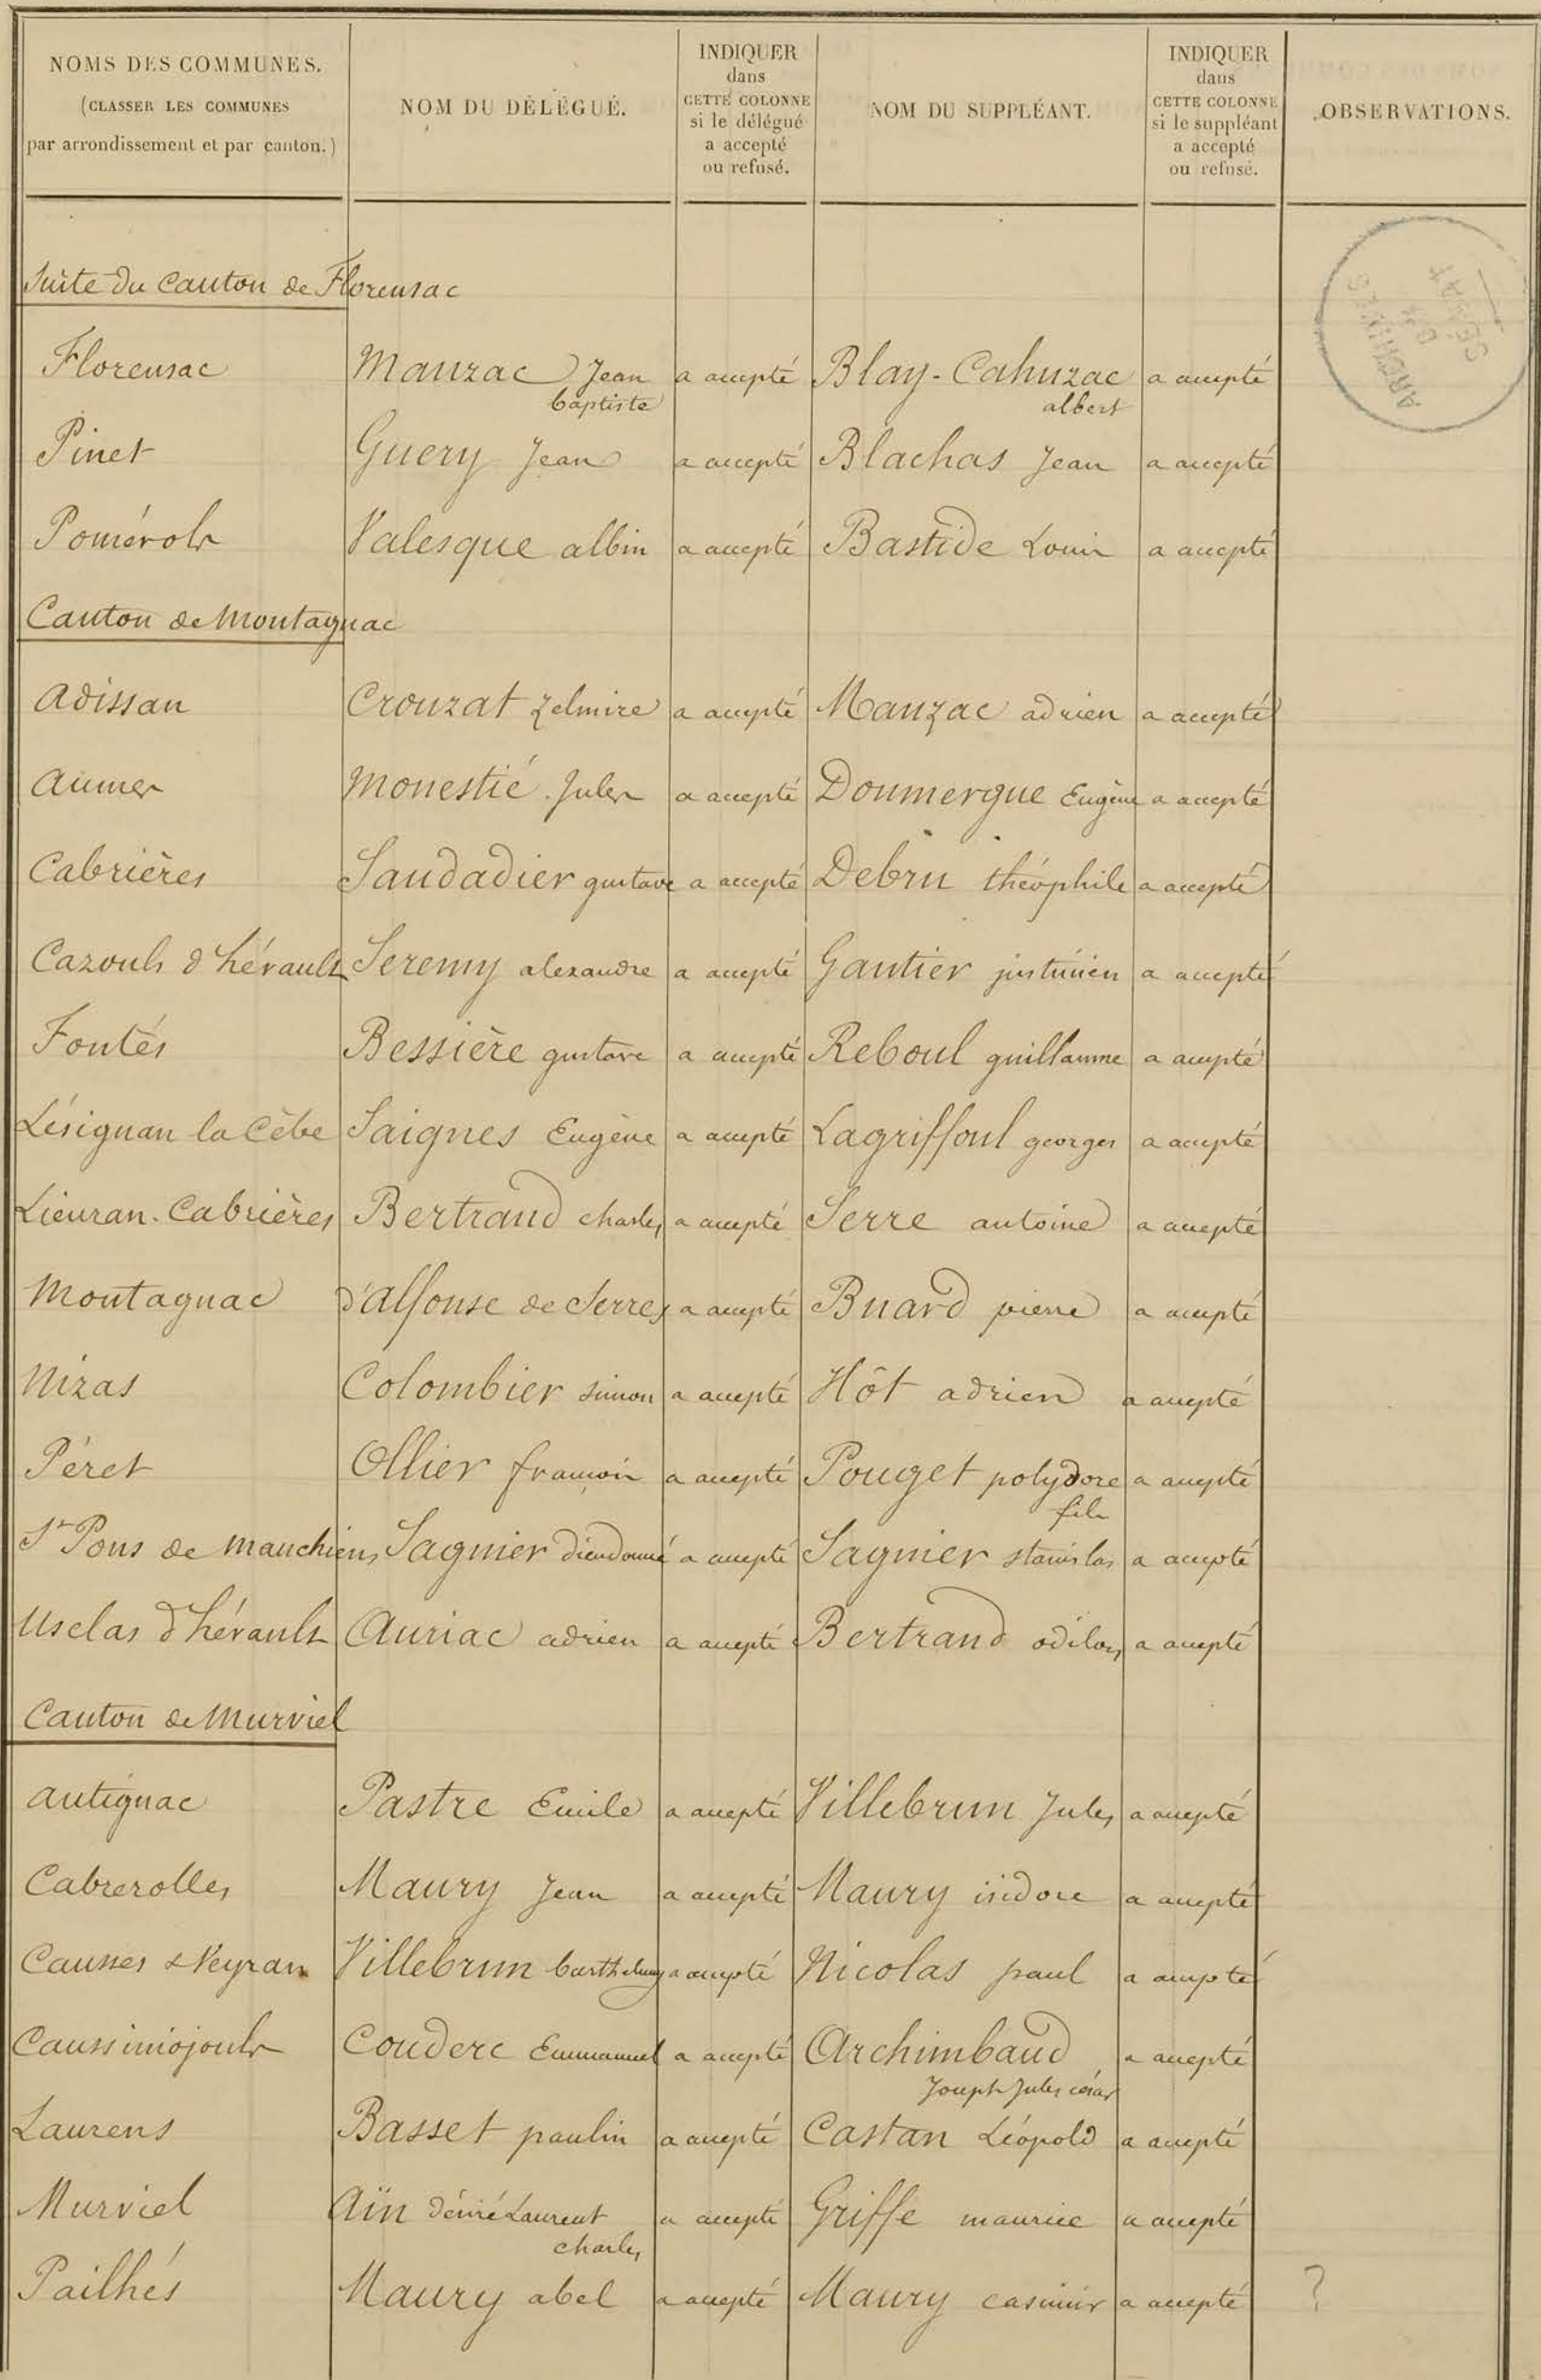 NOMS DES COMMUNES.
(CLASSER LES COMMUNES
par arrondissement et par canton.)
NOM DU DÉLÉGUÉ.
INDIQUER
dans
CETTE COLONNE
si le délégué
a accepté
ou refusé.
NOM DU SUPPLÉANT.
INDIQUER
dans
CETTE COLONNE
si le suppléant
a accepté
ou refusé.
OBSERVATIONS.
Suite du Canton de Florensac
Florensac Mauzac Jean a accepté Blay-Cahuzac a accepté
baptiste albert
Pinet Guery Jean a accepté Blachas Jean a accepté
Pomérols Valesque albin a accepté Bastide Louis a accepté
Canton de Montagnac
Adissan Crouzat Zelmire a accepté Mauzac adrien a accepté
Aumes Monestié Jules a accepté Doumergue Eugène a accepté
Cabrières Saudadier gustave a accepté Debru théophile a accepté
Cazouls d'hérault Seremy alexandre a accepté Gautier justinien a accepté
Fontés Bessière gustave a accepté Reboul guillaume a accepté
Lésignan la Cèbe Saignes Eugène a accepté Lagriffoul georges a accepté
Lieuran-Cabrières Bertrand charles a accepté Serre antoine a accepté
Montagnac d'alfonse de Serres a accepté Buard pierre a accepté
Nizas Colombier simon a accepté Hôt adrien a accepté
Péret Ollier françois a accepté Pouget polydore a accepté
fils
St Pons de Mauchiens Sagnier dieudonné a accepté Sagnier stanislas a accepté
Usclas d'hérault Auriac adrien a accepté Bertrand odilon a accepté
Canton de Murviel
Autignac Pastre Emile a accepté Villebrun Jules a accepté
Cabrerolles Maury Jean a accepté Maury isidore a accepté
Causses & Veyran Villebrun barthelemy a accepté Nicolas paul a accepté
Caussiniojouls Couderc Emmanuel a accepté Archimbaud a accepté
Joseph Jules césar
Laurens Basset paulin a accepté Castan Léopold a accepté
Murviel Aïn désiré Laurent a accepté Griffe maurice a accepté
charles
Pailhés Maury abel a accepté Maury casimir a accepté ?
ARCHIVES
DU
SÉNAT